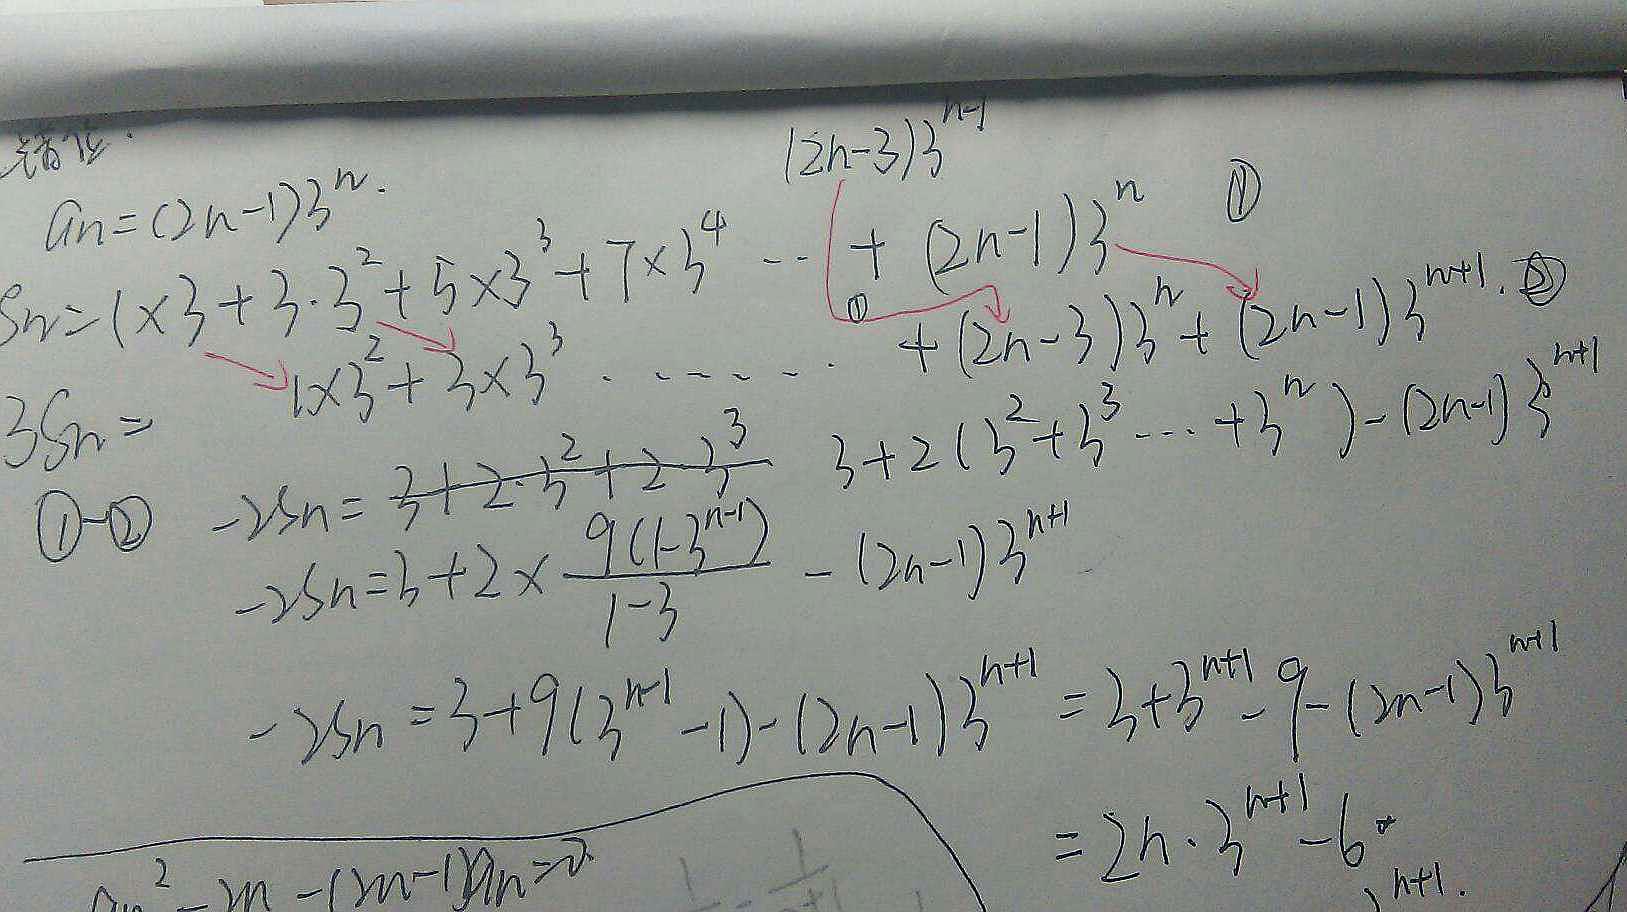 错位.
(2n-3)3^{n-1}
an=(2n-1)3^n.
Sn=1×3+3·3^2+5×3^3+7×3^4 ··· +(2n-1)3^n ①
①
3Sn= 1×3^2+3×3^3 ······· +(2n-3)3^n+(2n-1)3^{n+1}. ②
①-② -2Sn=3+2·3^2+2·3^3 3+2(3^2+3^3 ···+3^n)-(2n-1)3^{n+1}
-2Sn=3+2×\frac{9(1-3^{n-1})}{1-3}-(2n-1)3^{n+1}
-2Sn=3+9(3^{n-1}-1)-(2n-1)3^{n+1}=3+3^{n+1}-9-(2n-1)3^{n+1}
=2n·3^{n+1}-6
an^2-2n-(2n-1)an=0
3^{n+1}.